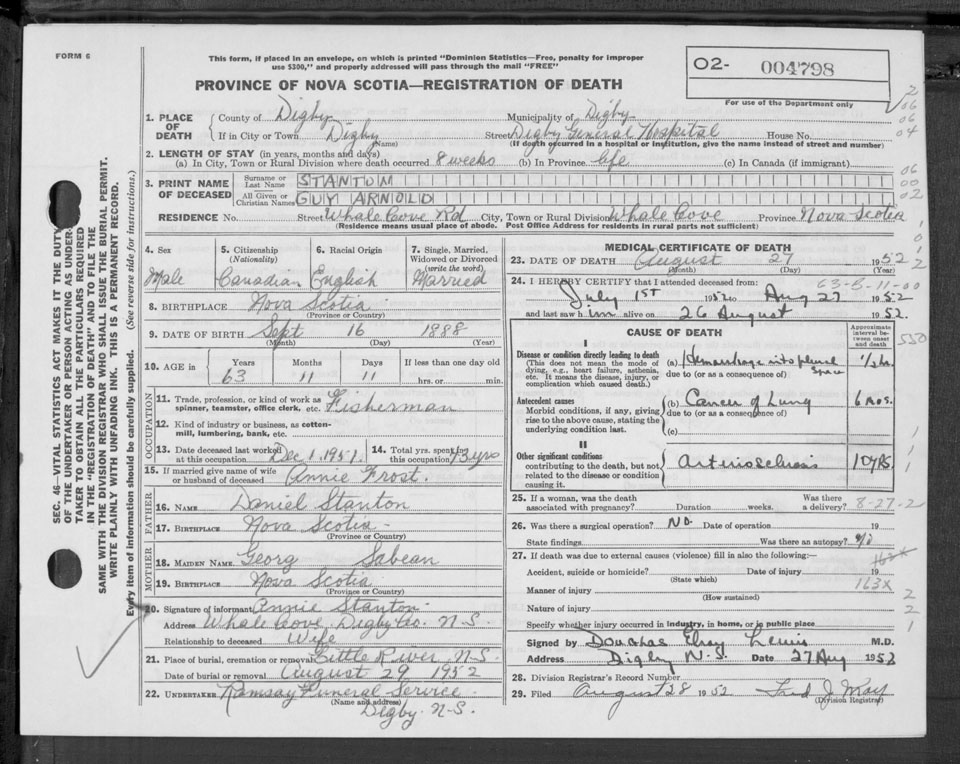 FORM 6
This form, if placed in an envelope, on which is printed "Dominion Statistics—Free, penalty for improper
use $300," and properly addressed will pass through the mail "FREE"
PROVINCE OF NOVA SCOTIA—REGISTRATION OF DEATH
O2- 004798
For use of the Department only
SEC. 46—VITAL STATISTICS ACT MAKES IT THE DUTY
OF THE UNDERTAKER OR PERSON ACTING AS UNDER-
TAKER TO OBTAIN ALL THE PARTICULARS REQUIRED
IN THE "REGISTRATION OF DEATH" AND TO FILE THE
SAME WITH THE DIVISION REGISTRAR WHO SHALL ISSUE THE BURIAL PERMIT.
WRITE PLAINLY WITH UNFADING INK. THIS IS A PERMANENT RECORD.
Every item of information should be carefully supplied. (See reverse side for instructions.)
1. PLACE OF DEATH
County of Digby Municipality of Digby
If in City or Town Digby Street Digby General Hospital House No.
(Name) (If death occurred in a hospital or institution, give the name instead of street and number)
2. LENGTH OF STAY (in years, months and days)
(a) In City, Town or Rural Division where death occurred 8 weeks (b) In Province life (c) In Canada (if immigrant)
3. PRINT NAME OF DECEASED
Surname or Last Name STANTON
All Given or Christian Names GUY ARNOLD
RESIDENCE No. Street Whale Cove Rd City, Town or Rural Division Whale Cove Province Nova Scotia
(Residence means usual place of abode. Post Office Address for residents in rural parts not sufficient)
2
06
06
04
06
00
02
1
0
1
2
4. Sex Male
5. Citizenship (Nationality) Canadian
6. Racial Origin English
7. Single, Married, Widowed or Divorced (write the word) Married
8. BIRTHPLACE Nova Scotia
(Province or Country)
9. DATE OF BIRTH Sept 16 1888
(Month) (Day) (Year)
10. AGE in Years 63 Months 11 Days 11 If less than one day old hrs. or min.
OCCUPATION
11. Trade, profession, or kind of work as
spinner, teamster, office clerk, etc. Fisherman
12. Kind of industry or business, as cotton-
mill, lumbering, bank, etc.
13. Date deceased last worked at this occupation Dec 1, 1951 14. Total yrs. spent in this occupation 13 yrs
15. If married give name of wife
or husband of deceased Annie Frost.
FATHER
16. NAME Daniel Stanton
17. BIRTHPLACE Nova Scotia
(Province or Country)
MOTHER
18. MAIDEN NAME Georg Sabean
19. BIRTHPLACE Nova Scotia
(Province or Country)
20. Signature of informant Annie Stanton
Address Whale Cove, Digby Co. N-S.
Relationship to deceased Wife
21. Place of burial, cremation or removal Little River, N-S-
Date of burial or removal August 29 1952
22. UNDERTAKER Ramsay Funeral Service
(Name and address)
Digby. N-S.
MEDICAL CERTIFICATE OF DEATH
23. DATE OF DEATH August 27 1952
(Month) (Day) (Year)
63-8-11-00
24. I HEREBY CERTIFY that I attended deceased from:
July 1ST 1952 to Aug 27 1952
and last saw him alive on 26 August 1952.
CAUSE OF DEATH
Approximate interval between onset and death
550
I
Disease or condition directly leading to death
(This does not mean the mode of
dying, e.g., heart failure, asthenia,
etc. It means the disease, injury, or
complication which caused death.)
(a) Hemorrhage into pleural space 1/2 hr.
due to (or as a consequence of)
Antecedent causes
Morbid conditions, if any, giving
rise to the above cause, stating the
underlying condition last.
(b) Cancer of Lung 6 mos.
due to (or as a consequence of)
(c)
II
Other significant conditions
contributing to the death, but not
related to the disease or condition
causing it.
Arteriosclerosis 10 yrs.
1
1
1
25. If a woman, was the death associated with pregnancy? Duration weeks. Was there a delivery? 8-27-2
26. Was there a surgical operation? No Date of operation 19
State findings Was there an autopsy? No
27. If death was due to external causes (violence) fill in also the following:—
Accident, suicide or homicide? Date of injury 19
(State which)
163X
Manner of injury
(How sustained)
Nature of injury
2
2
1
Specify whether injury occurred in industry, in home, or in public place
Signed by Douglas Lewis M.D.
Address Digby N.S. Date 27 Aug 1952
28. Division Registrar's Record Number
29. Filed August 28 1952 Fred J May
(Division Registrar)